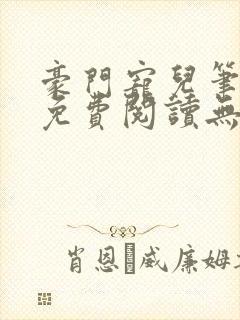 豪門寵兒筆
免費閱讀無
肖恩·威廉姆